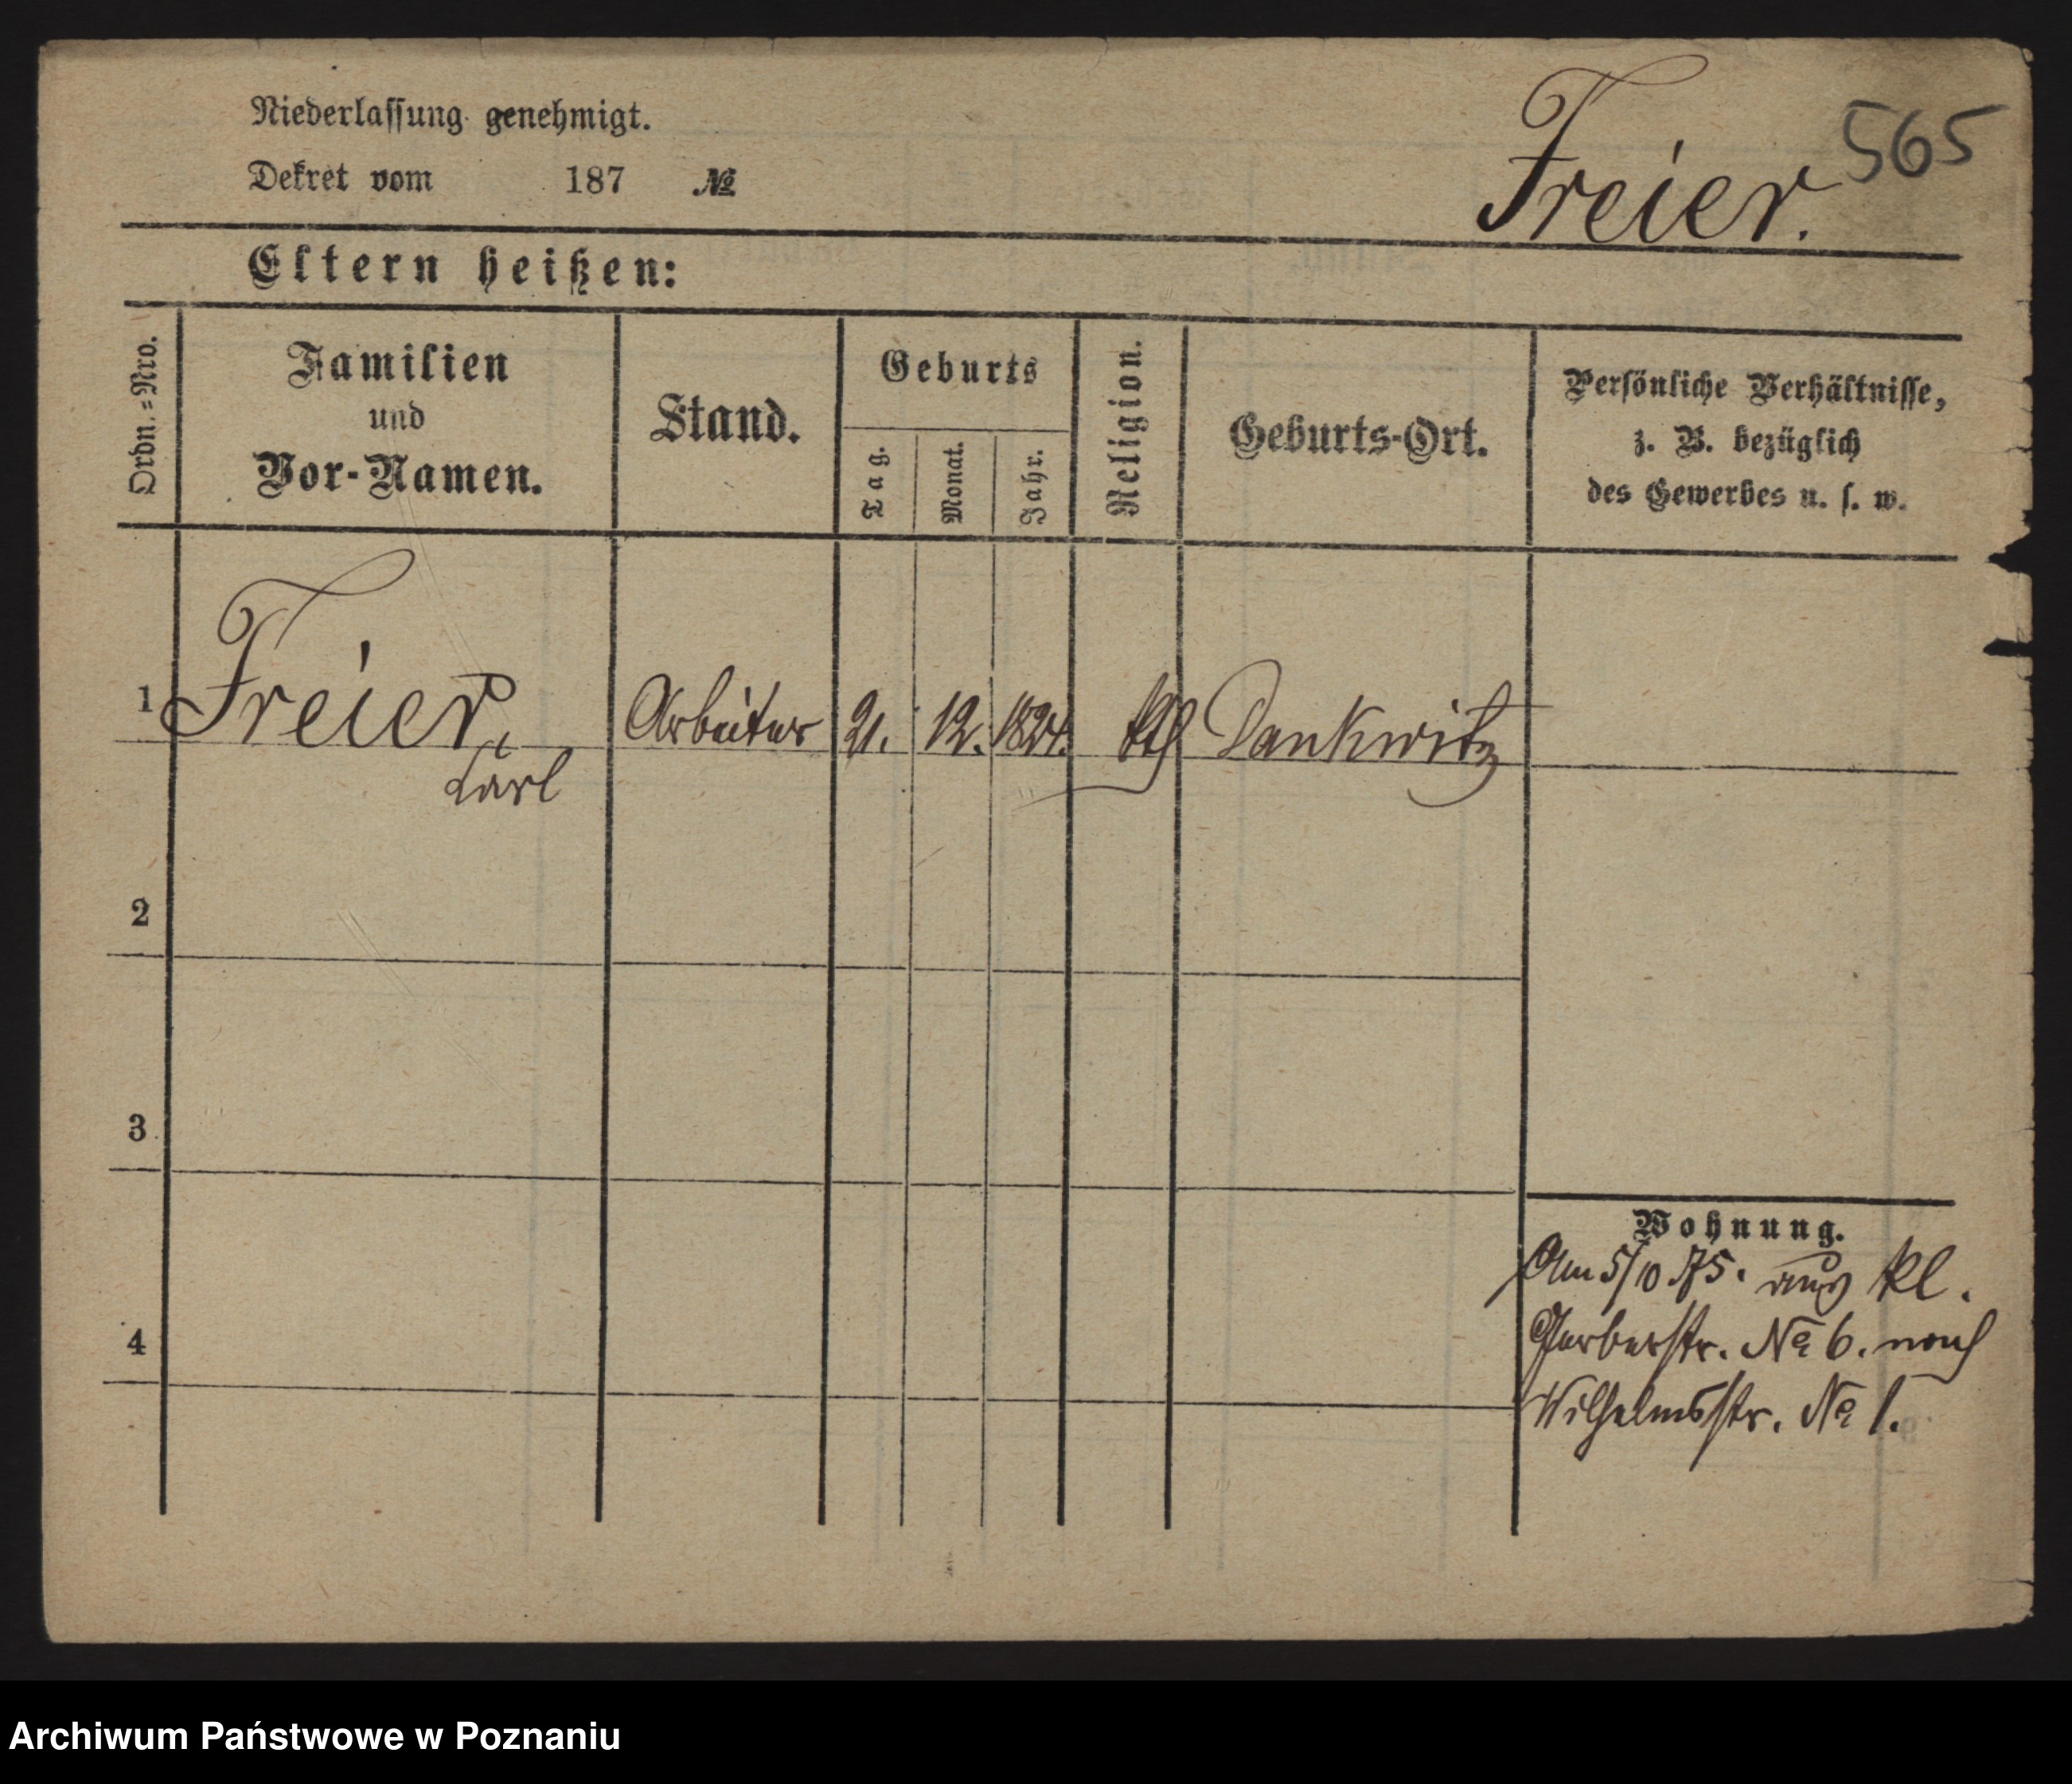 Niederlassung genehmigt.
Dekret vom 187 №
Freier.
565
Eltern heißen:
Ordn.=Nro.
Familien
und
Vor-Namen.
Stand.
Geburts
Tag.
Monat.
Jahr.
Religion.
Geburts-Ort.
Persönliche Verhältnisse,
z. B. bezüglich
des Gewerbes u. s. w.
1 Freier, Arbeiter 21. 12. 1824. kth Dankwitz
Carl
2
3
4
Wohnung.
Am 5/10 75. aus kl.
Gerberstr. № 6. nach
Wilhelmsstr. № 1.
Archiwum Państwowe w Poznaniu